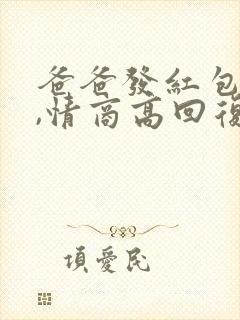 爸爸發紅包
,情商高回復
項愛民